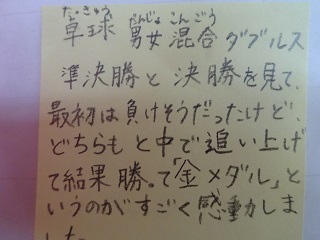 たっきゅう だんじょ こんごう
卓球 男女混合ダブルス
準決勝と決勝を見て、
最初は負けそうだったけど、
どちらもと中で追い上げ
て結果勝って「金メダル」と
いうのがすごく感動しま
した。